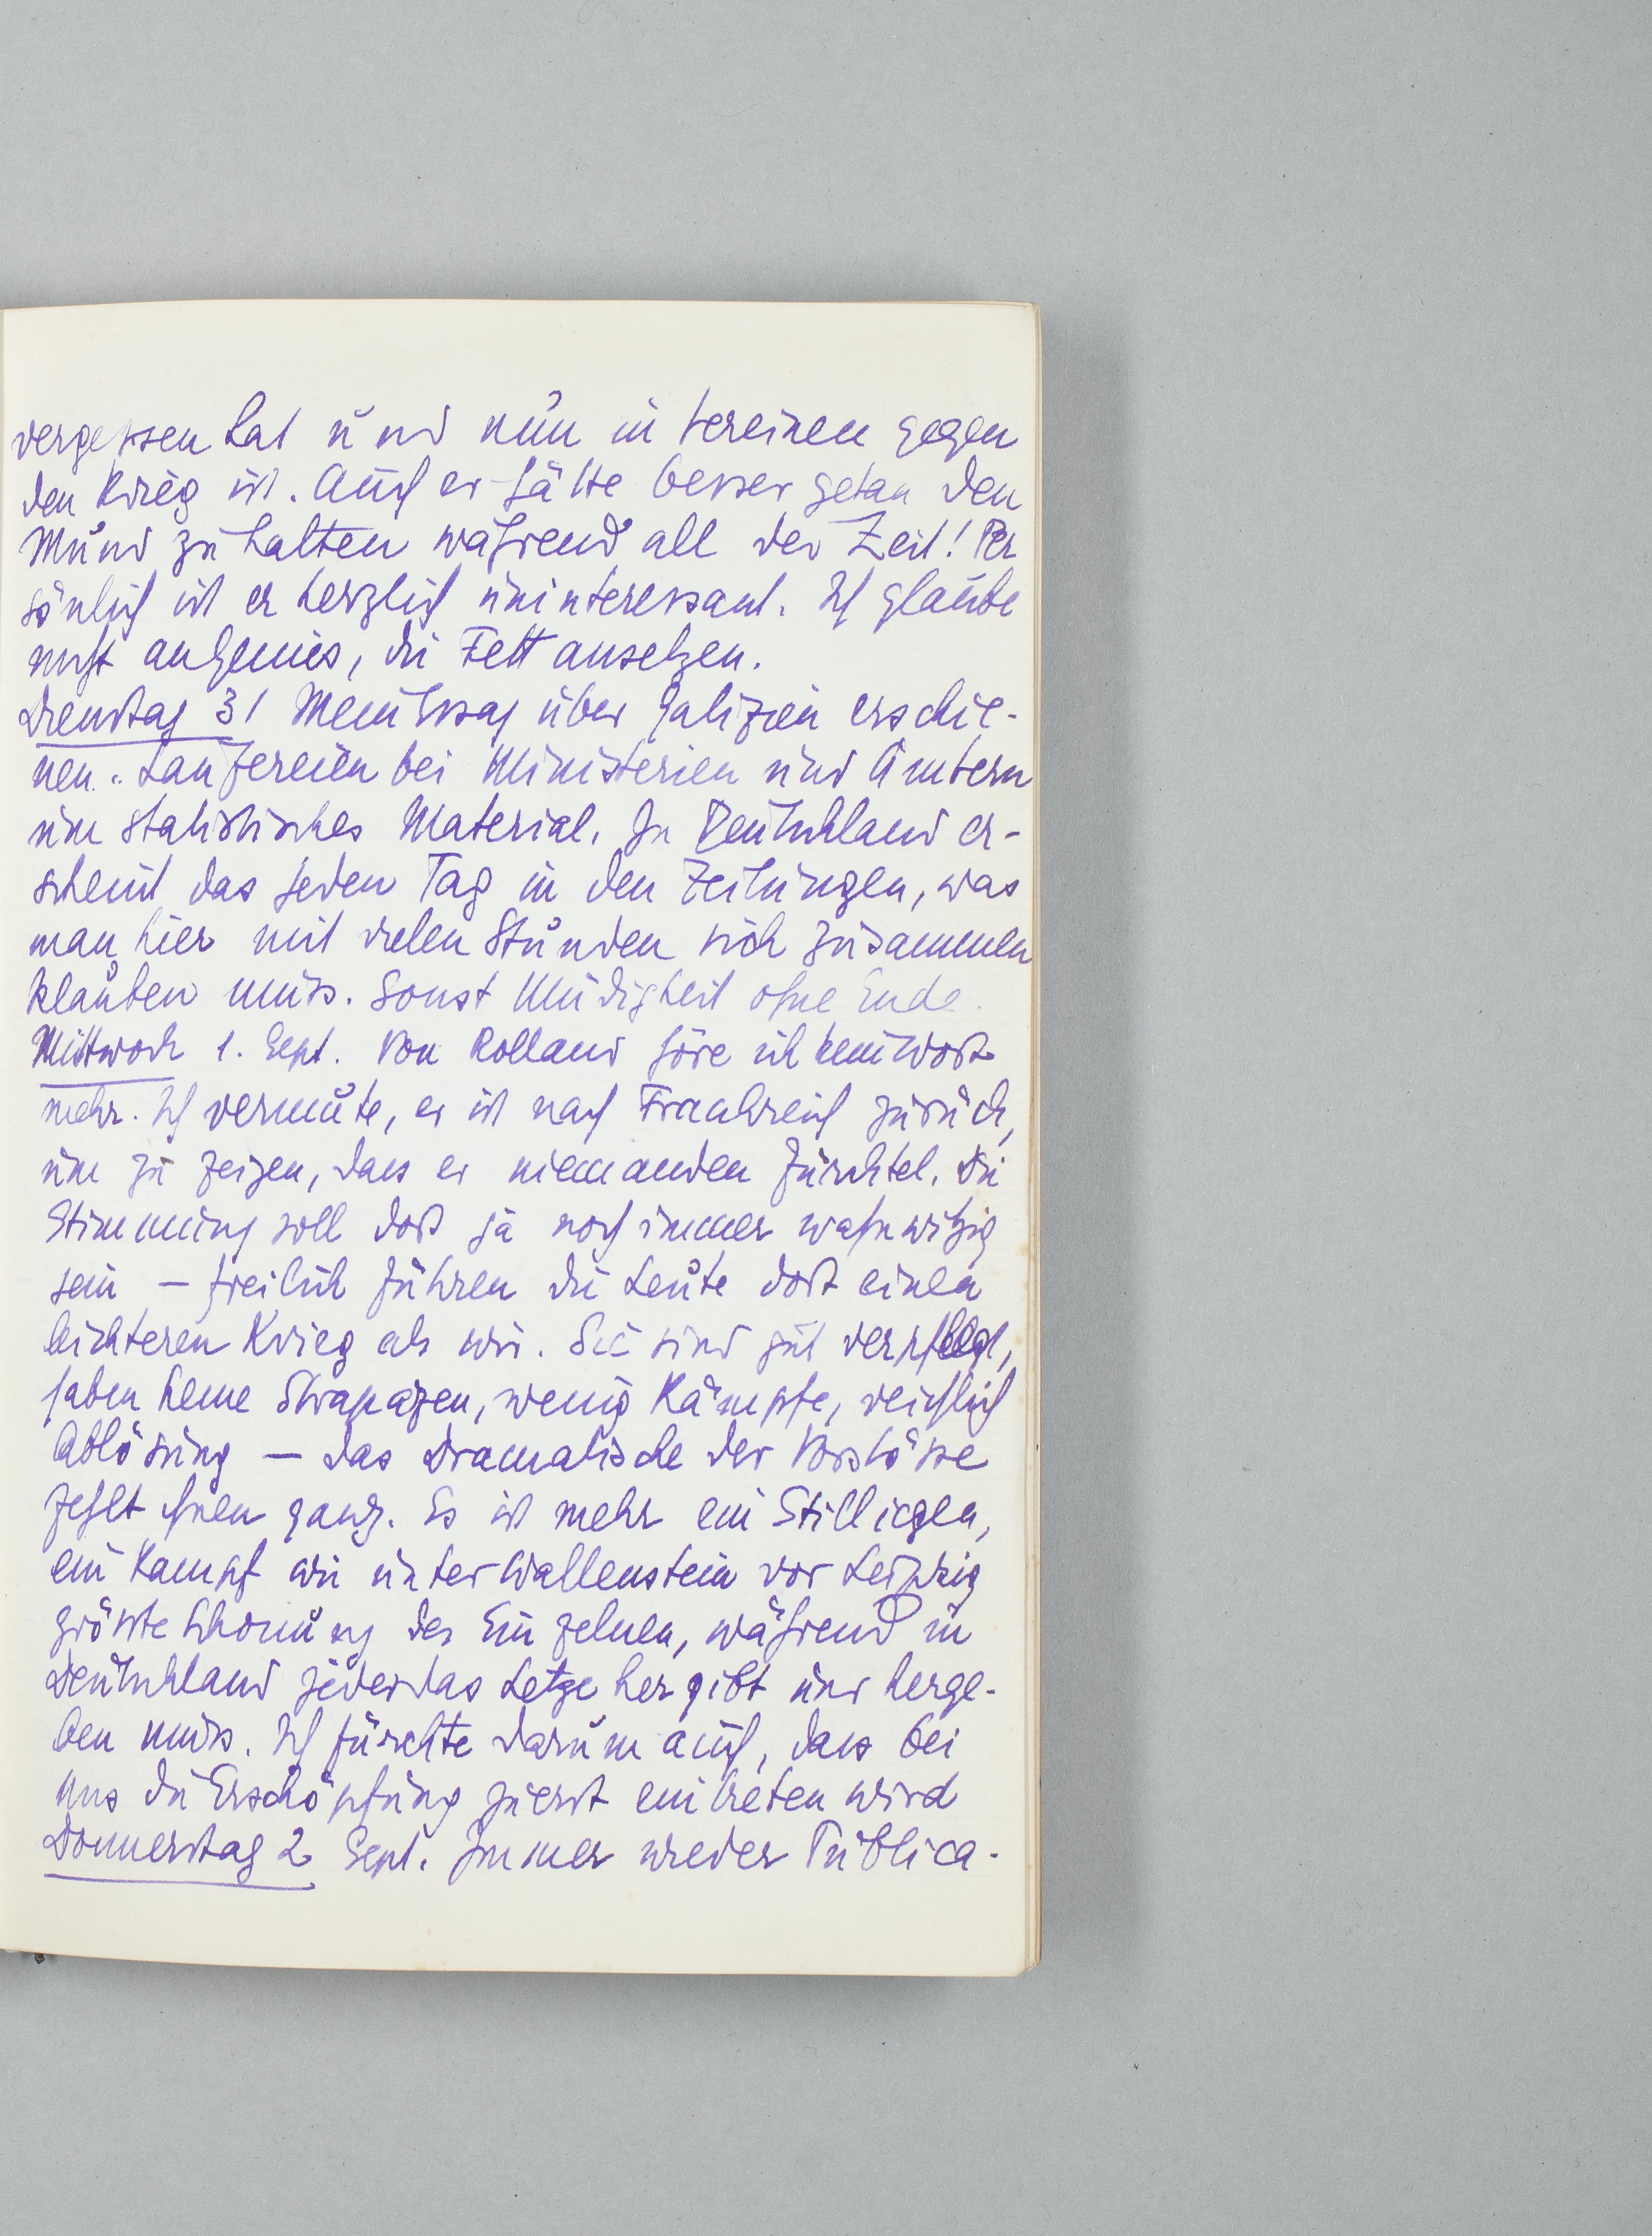 vergessen hat und nun in Vereinen gegen
den Krieg ist. Auch er hätte besser getan den
Mund zu halten während all der Zeit! Per
sönlich ist er herzlich uninteressant. Ich glaube
nicht an Genies, die Fett ansetzen.
Dienstag 31 Mein Essay über Galizien erschie-
nen. Laufereien bei Ministerien und Ämtern
um statistisches Material. In Deutschland er-
scheint das jeden Tag in den Zeitungen, was
man hier mit vielen Stunden sich zusammen
klauben muss. Sonst Müdigkeit ohne Ende.
Mittwoch 1. Sept. Von Rolland höre ich kein Wort
mehr. Ich vermute, er ist nach Frankreich zurück,
um zu zeigen, dass er niemanden fürchtet. Die
Stimmung soll dort ja noch immer wahnwitzig
sein – freilich führen die Leute dort einen
leichteren Krieg als wir. Sie sind gut verpflegt,
haben keine Strapazen, wenig Kämpfe, reichlich
Ablösung – das Dramatische der Vorstösse
fehlt ihnen ganz. Es ist mehr ein Stilliegen,
ein Kampf wie unter Wallenstein vor Leipzig
grösste Schonung des Einzelnen, während in
Deutschland jeder das Letze hergibt und herge-
ben muss. Ich fürchte darum auch, dass bei
uns die Erschöpfung zuerst eintreten wird
Donnerstag 2 Sept. Immer wieder Publica-